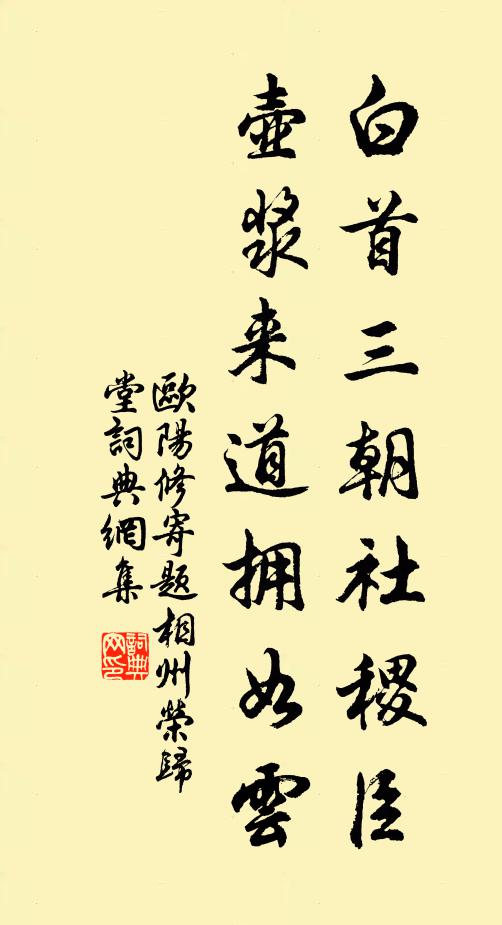 白首三朝社稷臣
壺漿来道拥如雲
歐陽修寄題相州榮歸
堂詞典網集
詞典网印